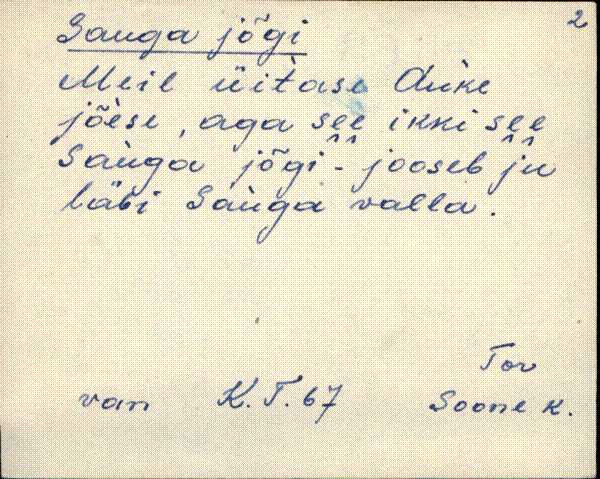 2
Sauga jõgi
Meil üitàse Äike
jõèse, aga see ikki see
Sàuga jõgi - jooseb ju
läbi Sàuga valla.
Tor
van K.T. 67 Soone k.